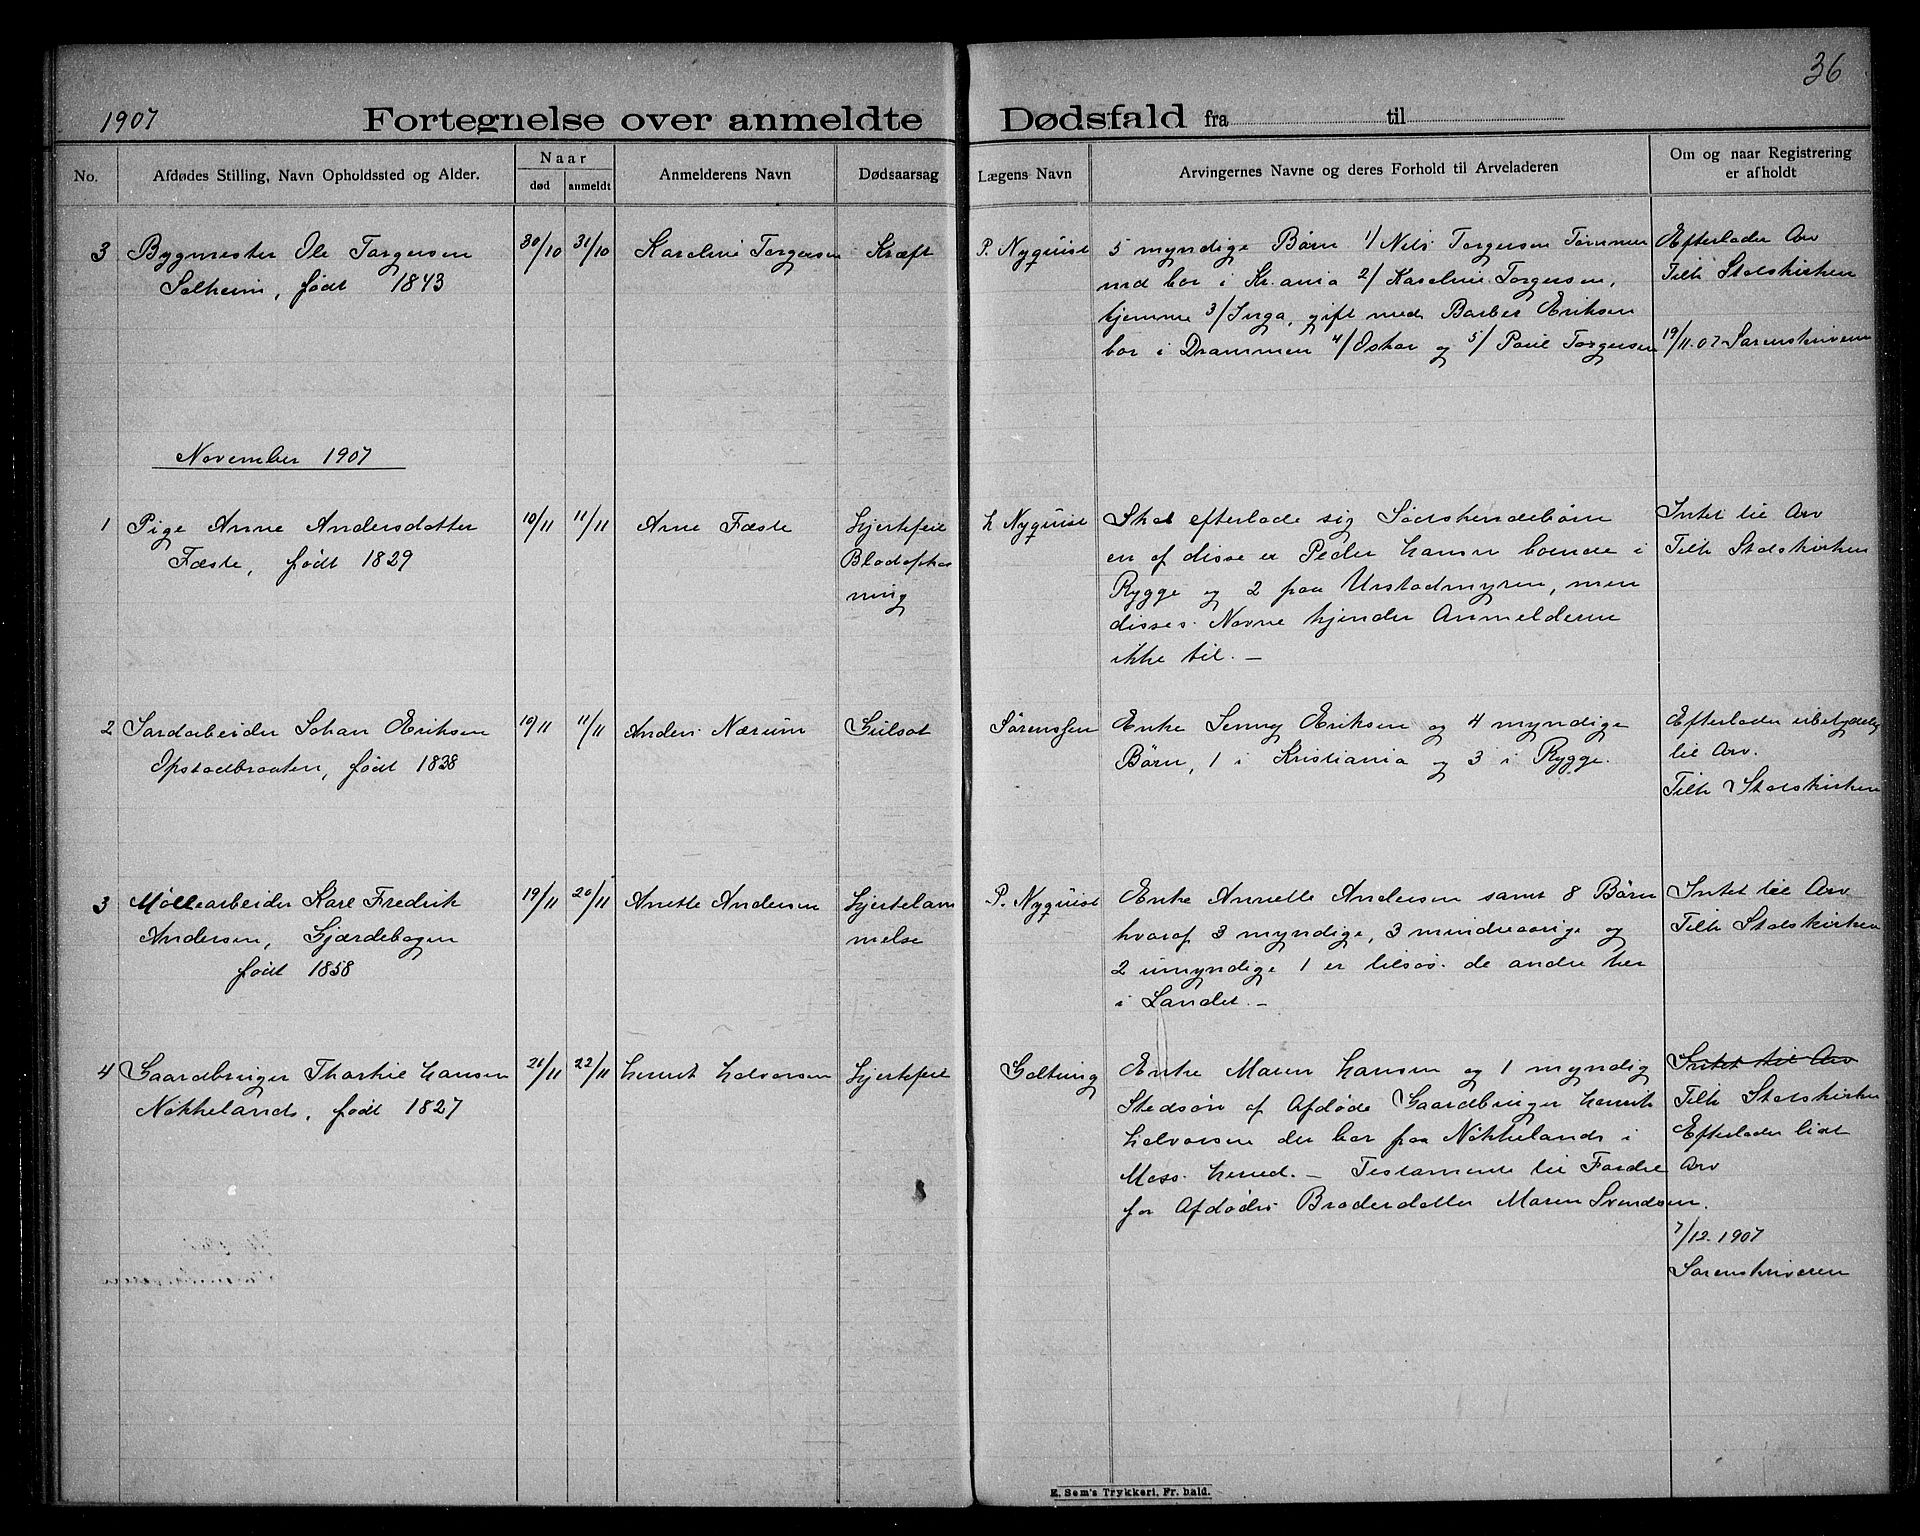 36
1907 Fortegnelse over anmeldte Dødsfald fra til
No. Afdødes Stilling, Navn Opholdssted og Alder. Naar død anmeldt Anmelderens Navn Dødsaarsag Lægens Navn Arvingernes Navne og deres Forhold til Arveladeren Om og naar Registrering er afholdt
3 Bygmester Ole Torgersen 30/10 31/10 Karoline Torgersen Kræft P. Nyquist 5 myndige Børn 1/ Nils Torgersen Tømmer Efterlader Arv
Solheim, født 1843 bor i Kr.ania 2/ Karoline Torgersen, Tilh Statskirken
hjemme 3/ Inga, gift med Barber Eriksen
bor i Drammen 4/ Oskar og 5/ Paul Torgersen 19/11.07 Sorenskriveren
November 1907
1 Pige Anne Andersdatter 10/11 11/11 Arne Fæste Hjertefeil H Nyquist Skal efterlade sig Sødskendebørn Intet til Arv
Fæste, født 1829 Blodophos en af disse er Peder Hansn boende i Tilh Statskirken
ning Rygge og 2 paa Urstadmyren, men
disses Navne kjender Anmelderen
ikke til. —
2 Jordarbeider Johan Eriksen 10/11 11/11 Anders Nærum Gulsot Sørenssen Enke Jenny Eriksen og 4 myndige Efterlader ubetydelig
Opstadbraaten, født 1838 Børn, 1 i Kristiania og 3 i Rygge. til Arv.
Tilh Statskirken
3 Møllearbeider Karl Fredrik 19/11 20/11 Anette Andersen Hjertelam P. Nyquist Enke Annette Andersen samt 8 Børn Intet til Arv
Andersen, Gjærdebogen melse hvoraf 3 myndige, 3 mindreaarige og Tilh Statskirken
født 1858 2 umyndige 1 er tilsøs. de andre her
i Landet. —
4 Gaardbruger Thorkil Hansen 21/11 22/11 Henrik Halvorsen Hjertefeil Galtung Enke Maren Hansen og 1 myndig Intet til Arv
Nökkelands, født 1827 Stedsøn af Afdøde Gaardbruger Henrik Tilh Statskirken
Halvorsen der bor paa Nökkelands i Efterlader lidt
Moss Herred. — Testamente til Fordel Arv
for Afdødes Broderdatter Maren Svendsen.
7/12.1907
Sorenskriveren
E. Sem's Trykkeri, Fr.hald.